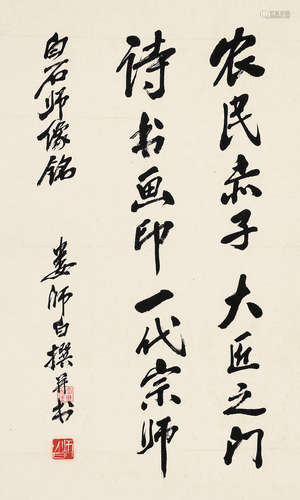 农民赤子大匠之门
诗书画印一代宗师
白石师像铭
娄师白撰并书